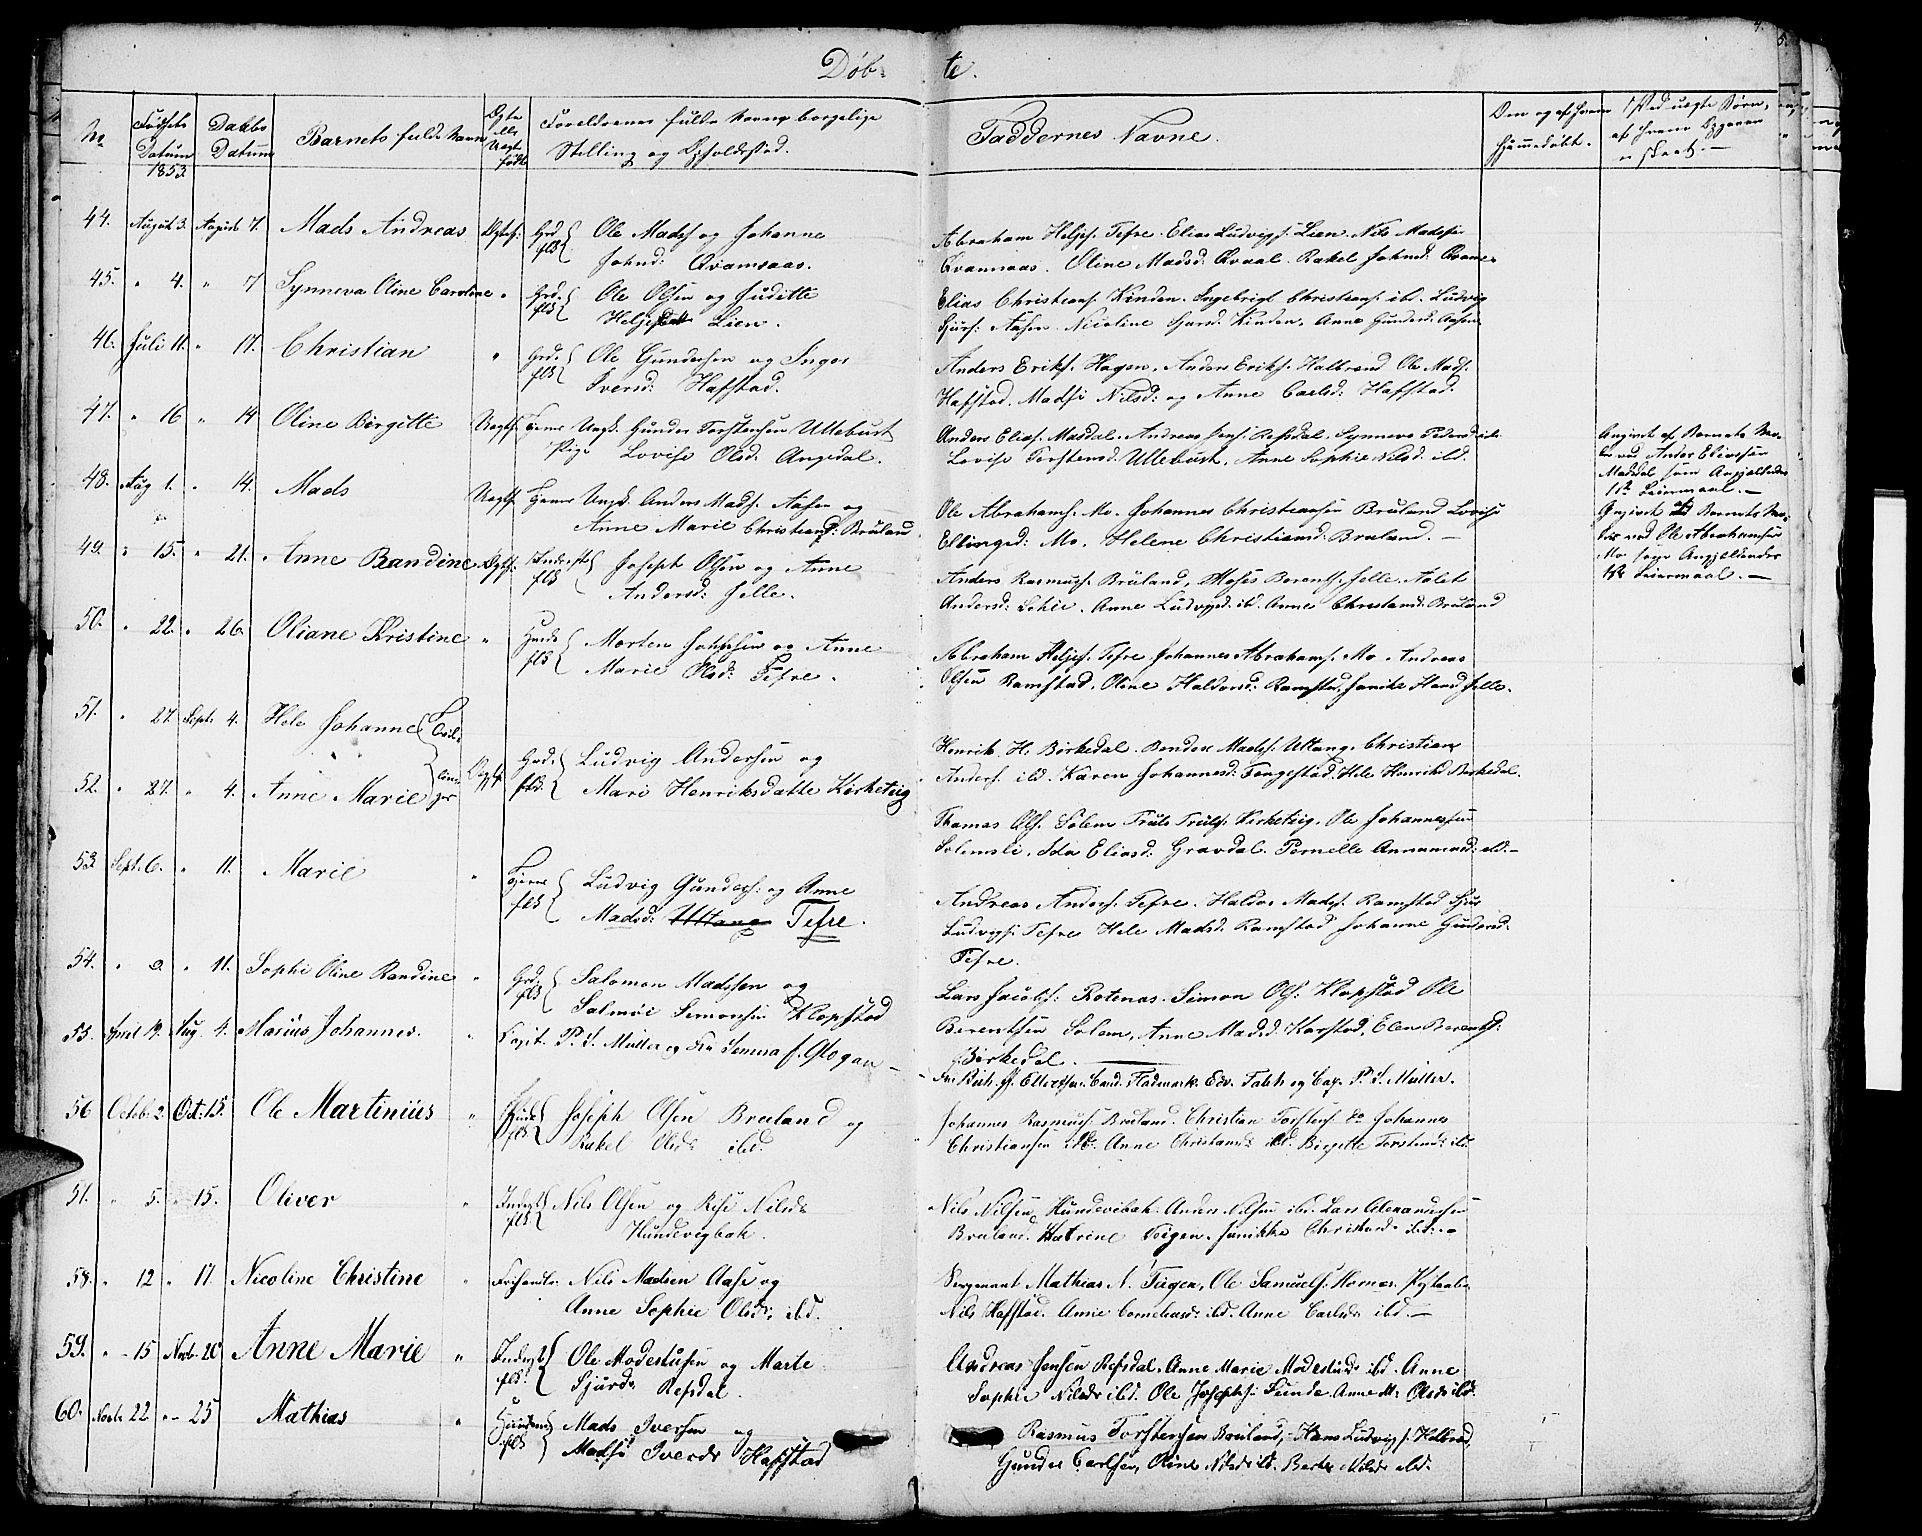 Døb- te.
No Fødsels Datum 1853. Daabs Datum Barnets fulde Navn Ægte eller Uægte født Forældrenes fulde Navne borgelige Stilling og Opholdssted. Faddernes Navne. Om og af hvem hjemmedøbt. Ved uegte Børn, af hvem Opgaven er skeet.
44. August 3. August 7. Mads Andreas Ægtef. Grd. flk Ole Mads. og Johanne
Johnd: Qvamsaas.
Abraham Heljes. Tefre. Elias Ludvigs. Lien. Nils Madsen
Qvamsaas. Oline Madsd. Qvaal. Rakel Johnd.
45. " 4. " 7 Synneva Oline Caroline " Grd. flk Ole Olsen og Juditte
Lien.
Elias Christians. Kinden. Ingebrigt Christians. ibd. Ludvig
Sjurs. Aasen. Nicoline Sjursd. Kinden, Anne Gundersd. Aasen
46. Juli 11. " 17. Christian " Grd. flk Ole Gundersen og Inger
Iversd: Hafstad.
Anders Eriks. Hagen, Anders Eriks. Halbrend Ole Mads.
Hafstad. Madsi Nilsd: og Anne Carlsd: Hafstad.
47. " 16 " 14 Oline Birgitte Uægtf. Tjener Ungk. Gunder Torstensen Ullebust
Pige Lovise Olsd. Angedal.
Anders Elias. Masdal. Andreas Jens. Refsdal. Synneva Pedersd. ibd.
Lovise Torstensd. Ullebust, Anne Sophie Nilsd. ibd.
Angivet af Barnets
Anders Eliassen
Masdal som Angjældendes
1ste Leiermaal. —
48. Aug 1. " 14. Mads Uægtf. Tjener Ungk Anders Mads. Aasen og
Anne Marie Christiansd: Bruland
Ole Abrahams. Mo. Johannes Christiansen Bruland Lovise
Ellingsd: Mo. Helene Christiansd: Bruland. —
Angivet af Barnets
ved Ole Abrahamsen
Mo som Angjeldendes
1ste Leiermaal. —
49. " 15. " 21. Anne Randine Ægtf. Inderst flk Joseph Olsen og Anne
Andersd: Jelle.
Anders Rasmus. Bruland, Moses Berents. Jelle. Aalet
Andersd: Anne Ludvigsd. ibd. Anne Christiansd. Bruland
50. " 22. " 26. Oliane Kristine " Huusm flk Morten Johnsen og Anne
Marie Olsd: Tefre.
Abraham Heljes. Tefre Johannes Abrahams. Mo. Andreas
Olsen Ramstad. Oline Haldorsd: Ramstad. Janike Hansd Jelle.
51. " 27. Sept. 4. Hele Johanne Tvil-
52. " 27. " 4. Anne Marie linger Ægtf. Grd. flk. Ludvig Andersen og
Mari Henriksdatte Kirketeig
Henrik H. Birkedal. Bendix Mads. Uttang. Christian
Anders. ibd. Karen Johannesd: Tengestad. Hele Henriksd Birkedal.
Thomas Ols. Solem Truls Truls. Kirketeig. Ole Johannessen
Solemsli, Ida Eliasd: Gravdal. Pernelle Annanaasd: ibd. —
53 Sept. 6. " 11. Marie " Tjener flk Ludvig Gunders: og Anne
Madsd: Uttang Tefre.
Andreas Anders. Tefre. Haldor Mads. Ramstad Sjur
Ludvigs. Tefre Hele Madsd. Ramstad Johanne Gundersd.
Tefre.
54. " " 11. Sophi Oline Randine " Grd. flk Salomon Madssen og
Salmøe Simonsen Klopstad
Lars Jacobs. Rotenas. Simon Ols: Klopstad Ole
Berentsen Solem, Anne Madsd Karstad, Elen Berentsd.
Birkedal. —
55. April 19. Aug. 4. Marius Johannes. " P. S. Müller og Fru Semina f. Glogau —
Cand. Fladmark. Edv. Falch og Cap. P. S. Müller.
56 Octob. 2. Oct: 15. Ole Martinius " flk Joseph Olsen Bruland og
Rakel Olsd: ibd.
Johannes Rasmus. Bruland. Christian Torstens. do Johannes
Christiansen ibd. Anne Christiansd: ibd. Birgitte Torstensd: ibd
57. " 5. " 15. Oliver " Inderst flk. Nils Olsen og Nilsd:
Hundevigbak.
Nils Nilsen Hundevibak. Anders Nilsen ibd. Lars Alexandersen
Bruland Katrine Teigen. Janikka Christensd. ibd. —
58. " 12 " 17. Nicoline Christine " Nils Madsen Aase og
Anne Sophie Olsd: ibd.
Sergeant Mathias N. Teigen, Ole Samuels. Hornes.
Nils Hafstad. Anne Corneliusd: ibd. Anne Carlsd: ibd. —
59. " 15 Novb. 20 Anne Marie " Inderst flk. Ole Modestusen og Marte
Sjurd: Refsdal.
Andreas Jensen Refsdal. Anne Marie Modestusd: ibd. Anne
Sophie Nilsd: ibd. Ole Josephs: Sunde. Anne M. Olsd: ibd.
60. Novb. 22. " 25 Mathias " flk Mads Iversen og
Madsi Iversd: Hafstad
Rasmus Torstensen Bruland, Hans Ludvigs. Halbrend,
Gunder Carlsen, Oline Nilsd: ibd. Berte Nilsd: ibd.